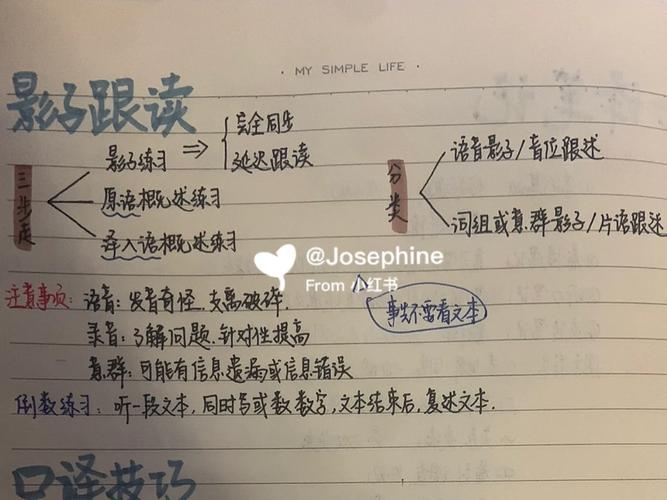 · MY SIMPLE LIFE ·
影子跟读
三步走
影子练习 ⇒ 完全同步
延迟跟读
原语概述练习
译入语概述练习
分类
语音影子/音位跟述
词组或意群影子/片语跟述
@Josephine
From 小红书
注意事项: 语音: 发音奇怪、支离破碎.
事先不要看文本
录音: 了解问题、针对性提高
意群: 可能有信息遗漏或信息错误
倒数练习: 听一段文本,同时写或数数字,文本结束后,复述文本.
口译技巧